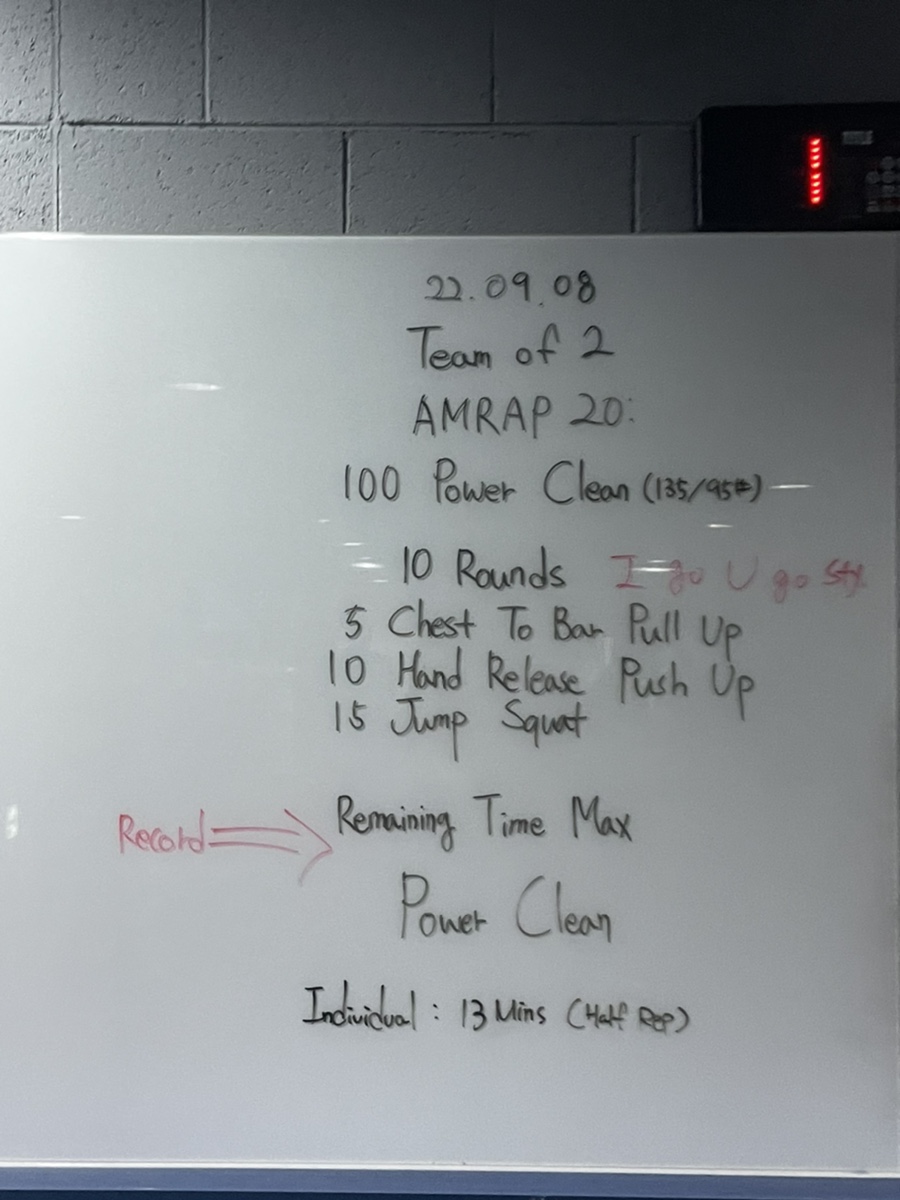 22.09.08
Team of 2
AMRAP 20:
100 Power Clean (135/95#)
10 Rounds I go U go
5 Chest To Bar Pull Up
10 Hand Release Push Up
15 Jump Squat
Record ⇒ Remaining Time Max
Power Clean
Individual : 13 Mins (Half Rep)